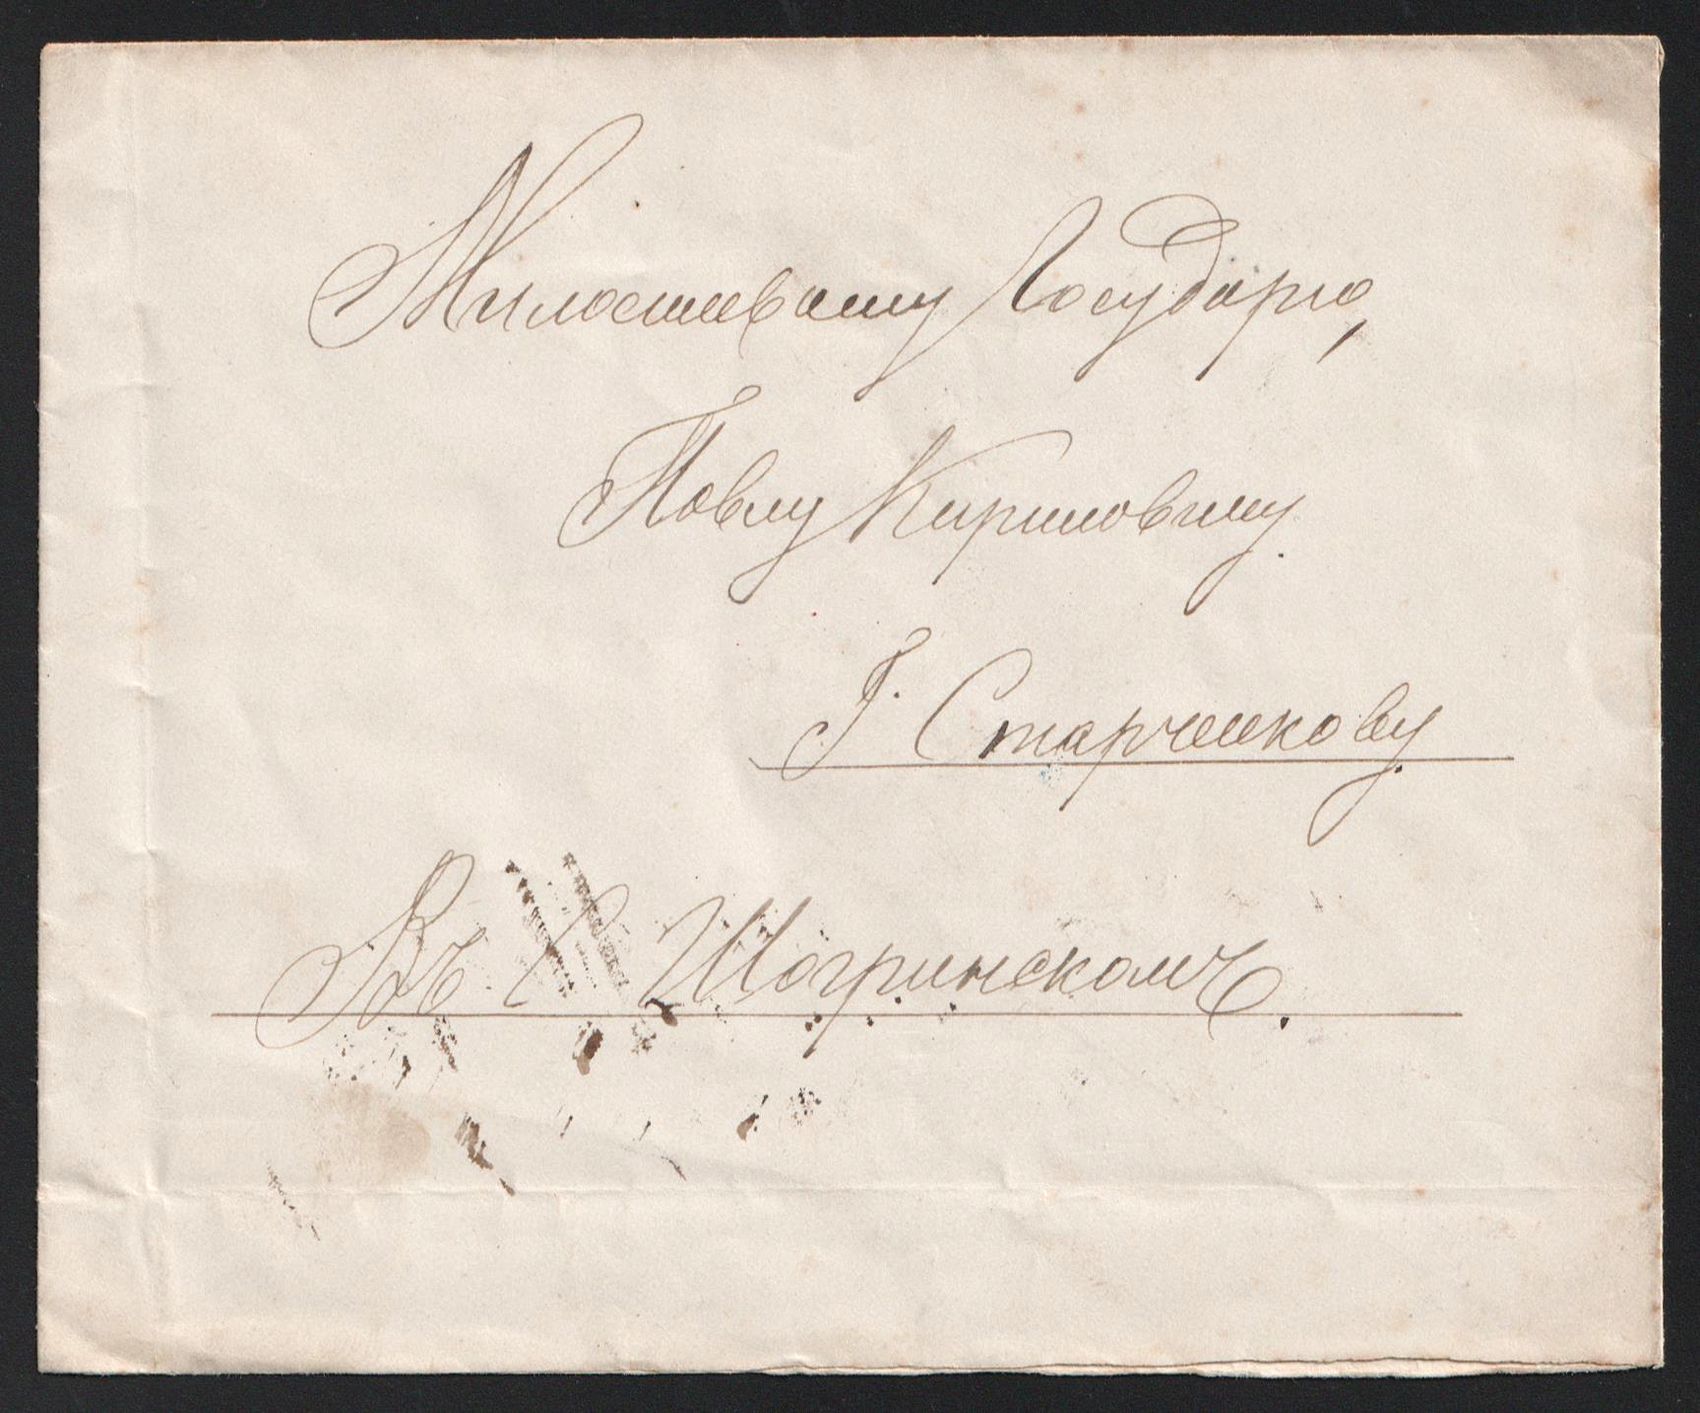 Милостивому Государю,
Павлу Кириловичу
Г. Старченкову.
Въ С Шогринскомъ.